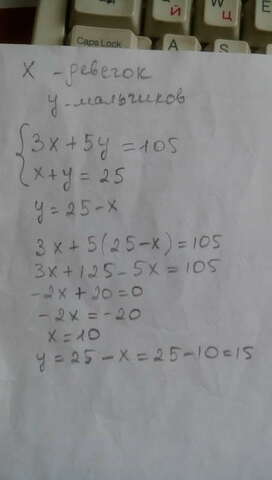 Й Ц
Caps Lock A S
x - девочек
y - мальчиков
{ 3x + 5y = 105
x + y = 25
y = 25 - x
3x + 5(25 - x) = 105
3x + 125 - 5x = 105
-2x + 20 = 0
-2x = -20
x = 10
y = 25 - x = 25 - 10 = 15